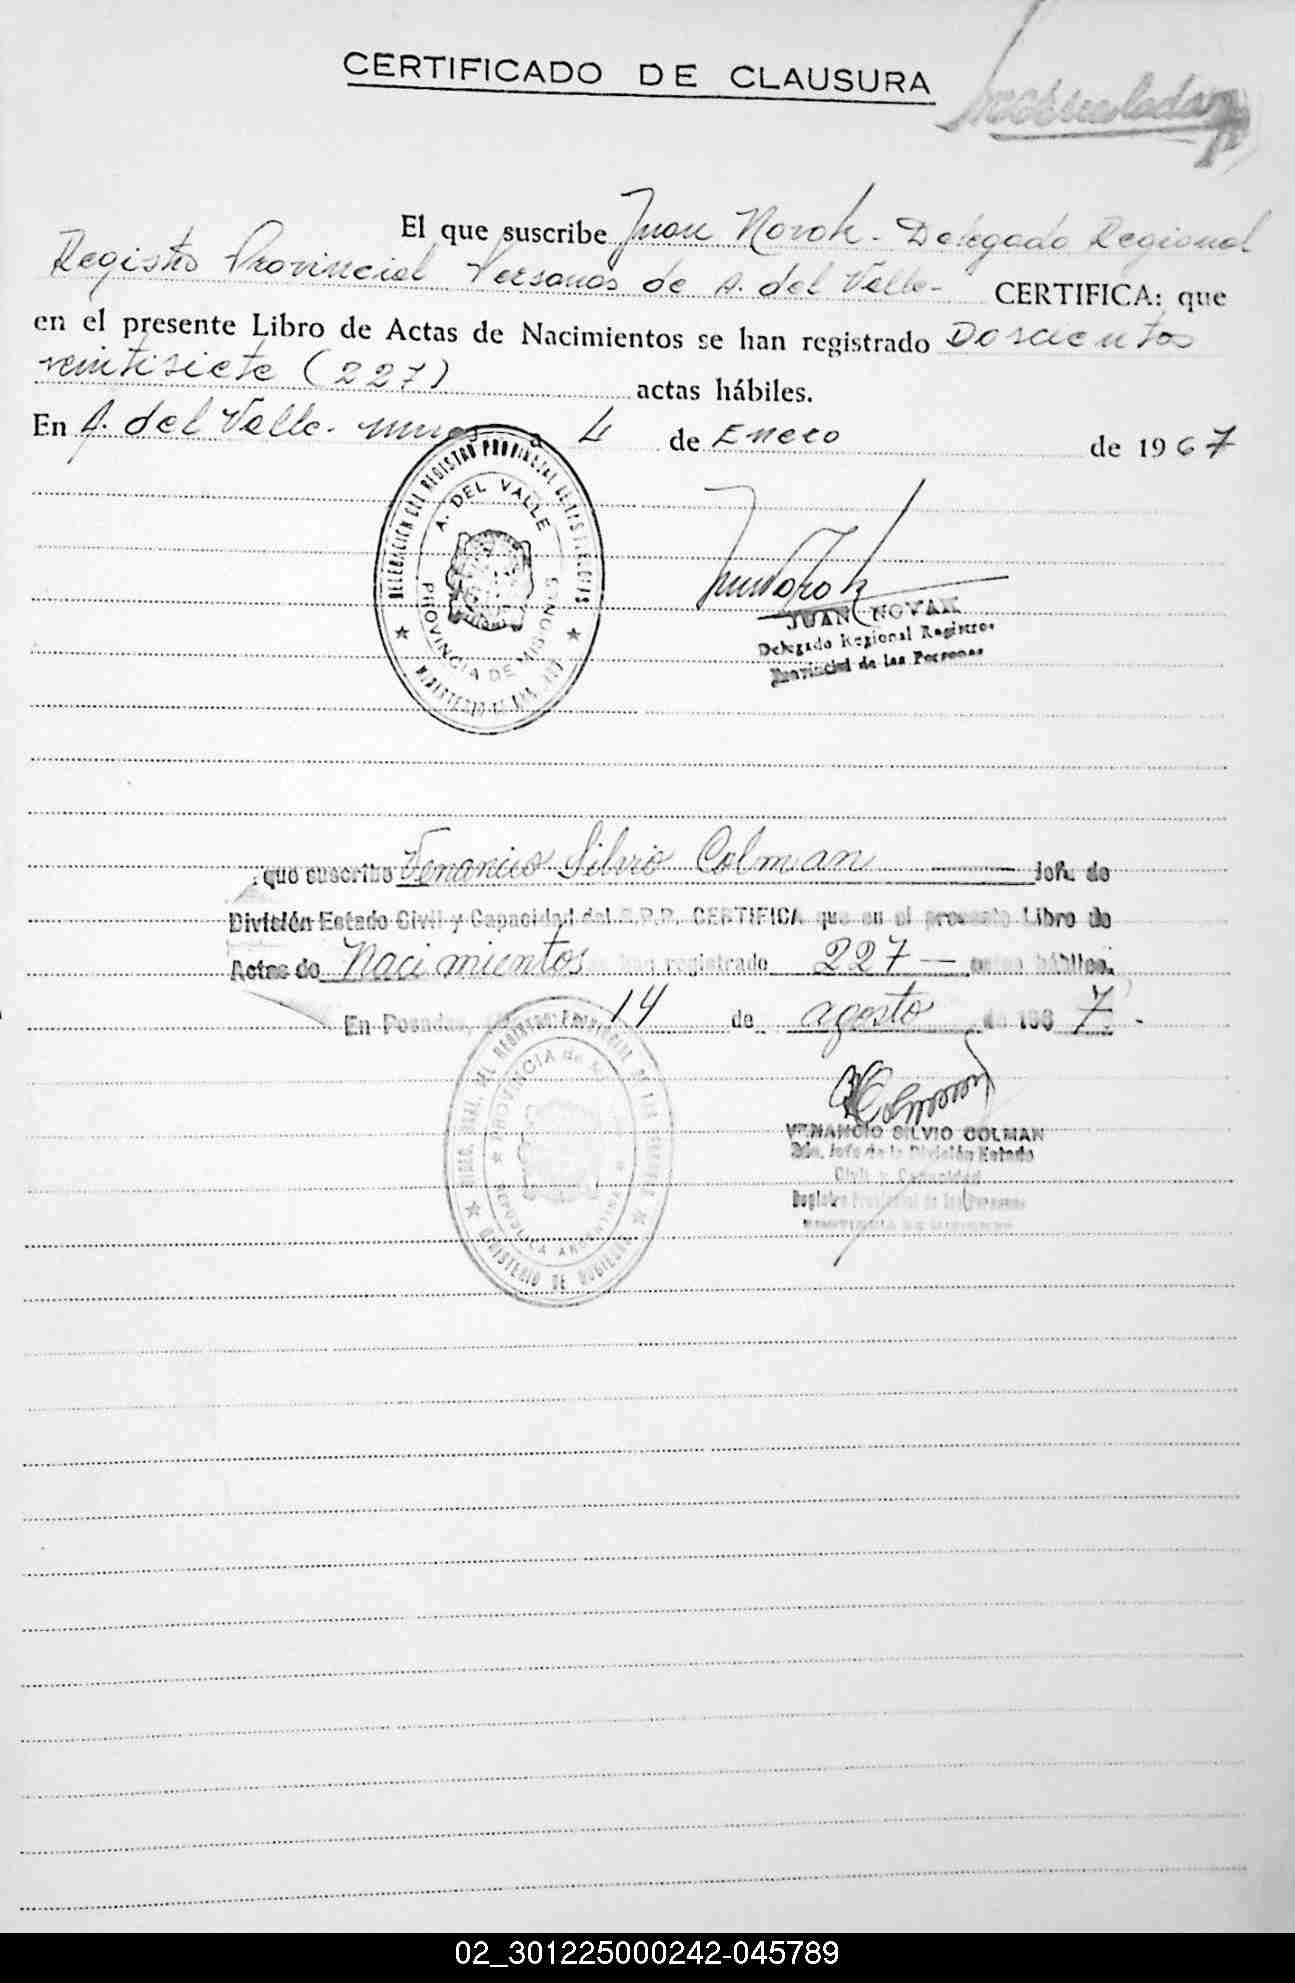 CERTIFICADO DE CLAUSURA
El que suscribe Juan Novak - Delegado Regional
Registro Provincial Personas de A. del Valle - CERTIFICA: que
en el presente Libro de Actas de Nacimientos se han registrado Doscientos
veintisiete (227) actas hábiles.
En A. del Valle - a 4 de Enero de 1967
DELEGACION DEL REGISTRO PROVINCIAL DE LAS PERSONAS
A. DEL VALLE
PROVINCIA DE MISIONES
JUAN NOVAK
Delegado Regional Registro
Provincial de las Personas
que suscribe Venancio Silvio Colman Jefe de
División Estado Civil y Capacidad del R.P.P. CERTIFICA que en el presente Libro de
Actas de Nacimientos se han registrado 227 — actas hábiles.
En Posadas, 14 de agosto de 1967 -
PROVINCIA de
REPUBLICA ARGENTINA
MINISTERIO DE GOBIERNO
VENANCIO SILVIO COLMAN
Jefe de la División Estado
Civil y Capacidad
Registro Provincial de las Personas
02_301225000242-045789